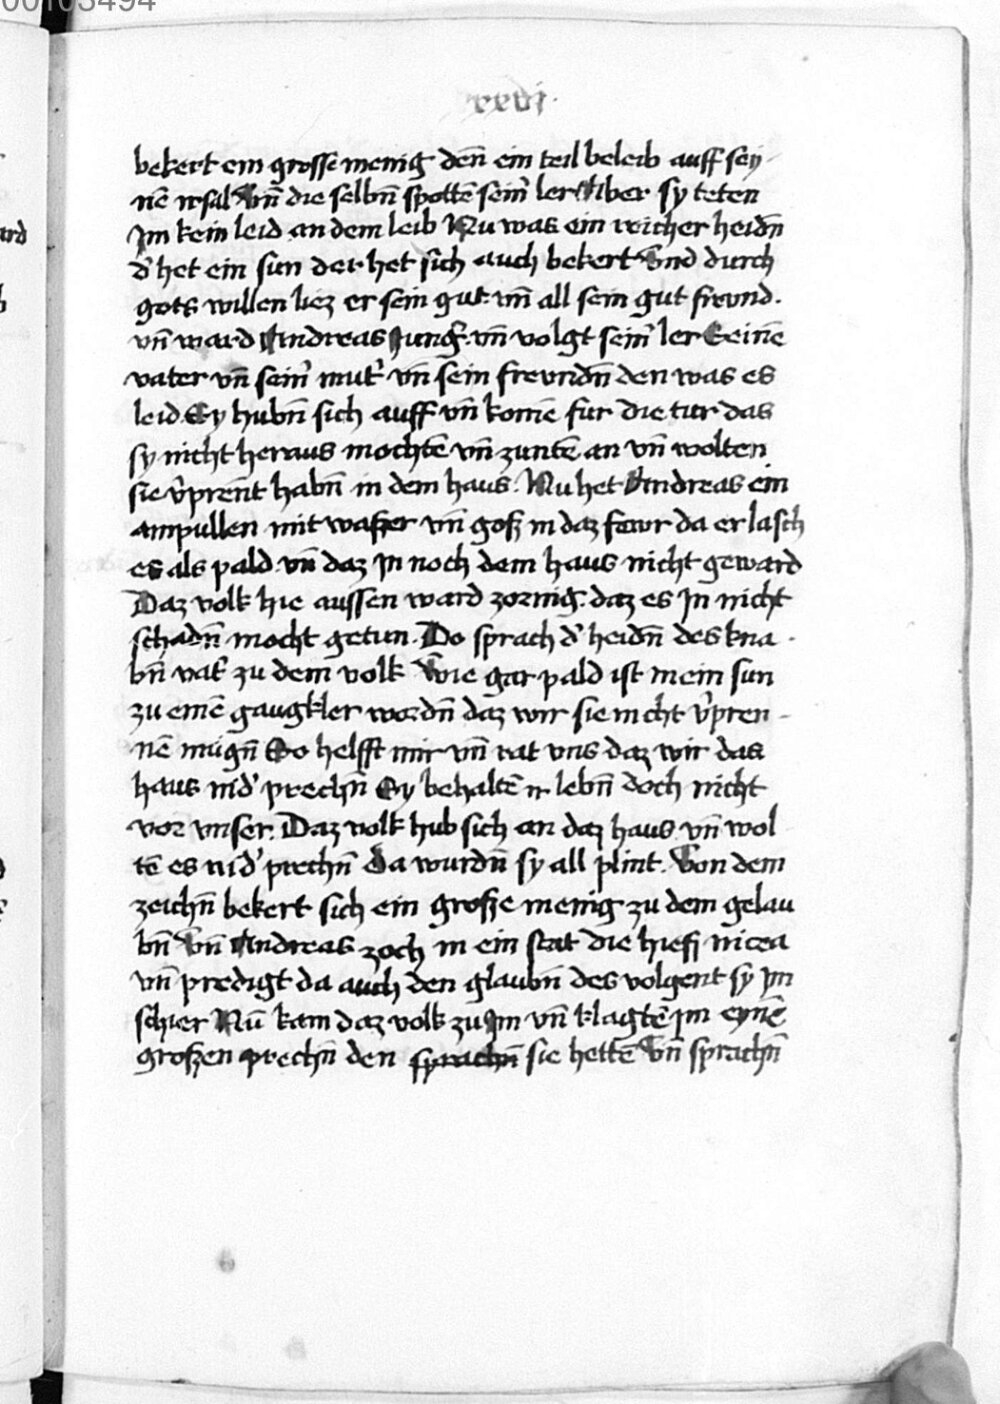 00103494
xxvi
bekert ein grosse menig den̄ ein teil beleib auff sey-
nē irsal Vn̄ die selbn̄ spottē sein̛ ler Aber sy teten
Im kein leid an dem leib Nu was ein reicher heidn̄
d̛ het ein sun der het sich auch bekert Vnd durch
gots willen liez er sein gut vn̄ all sein gut frevnd.
vn̄ ward Andreas Jung̛ vn̄ volgt sein̛ ler Seinē
vater vn̄ sein̛ mut̛ vn̄ sein frevndn̄ den was es
leid Sy hubn̄ sich auff vn̄ komē fur die tur das
sy nicht heraus mochtē vn̄ zuntē an vn̄ wolten
sie v̛prent habn̄ in dem haus. Nu het Andreas ein
ampullen mit waßer vn̄ goß in daz fewr da erlasch
es als pald vn̄ daz In noch dem haus nicht geward
Daz volk hie aussen ward zornig. daz es In nicht
schadn̄ mocht getun. Do sprach d̛ heidn̄ des kna-
bn̄ vat̛ zu dem volk Wie gar pald ist mein sun
zu einē gaugkler wordn̄ daz wir sie nicht v̛pren-
nē mugn̄ So helfft mir vn̄ rat vns daz wir das
haus nid̛ prechn̄ Sy behaltē ir lebn̄ doch nicht
vor vnser. Daz volk hub sich an daz haus vn̄ wol
tē es nid̛ prechn̄ da wurdn̄ sy all plint. Von dem
zeichn̄ bekert sich ein große menig zu dem gelau
bn̄ Vn̄ Andreas zoch in ein stat die hieß nicea
vn̄ predigt da auch den glaubn̄ des volgent sy Im
schier Nū kam daz volk zu Im vn̄ klagtē im eynē
großen prechn̄ den sprachn̄ sie hettē Vn̄ sprachn̄